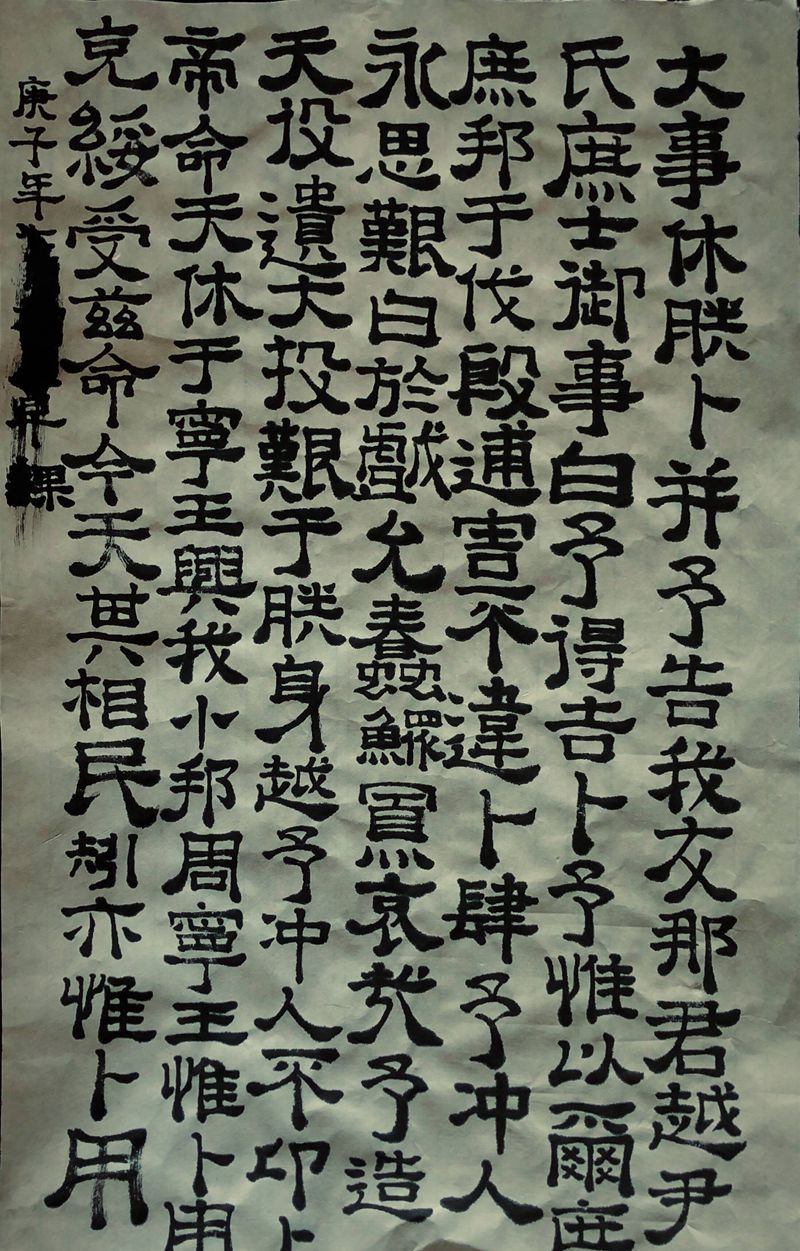 大事休朕卜并予告我友那君越尹
氏庶士御事曰予得吉卜予惟以爾庶
庶邦于伐殷逋害不違卜肆予冲人
永思艱曰於戲允蠢鰥寡哀哉予造
天役遺大投艱于朕身越予冲人不卬卜
帝命天休于寧王興我小邦周寧王惟卜用
克綏受茲命今天其相民矧亦惟卜用
庚子年 早課